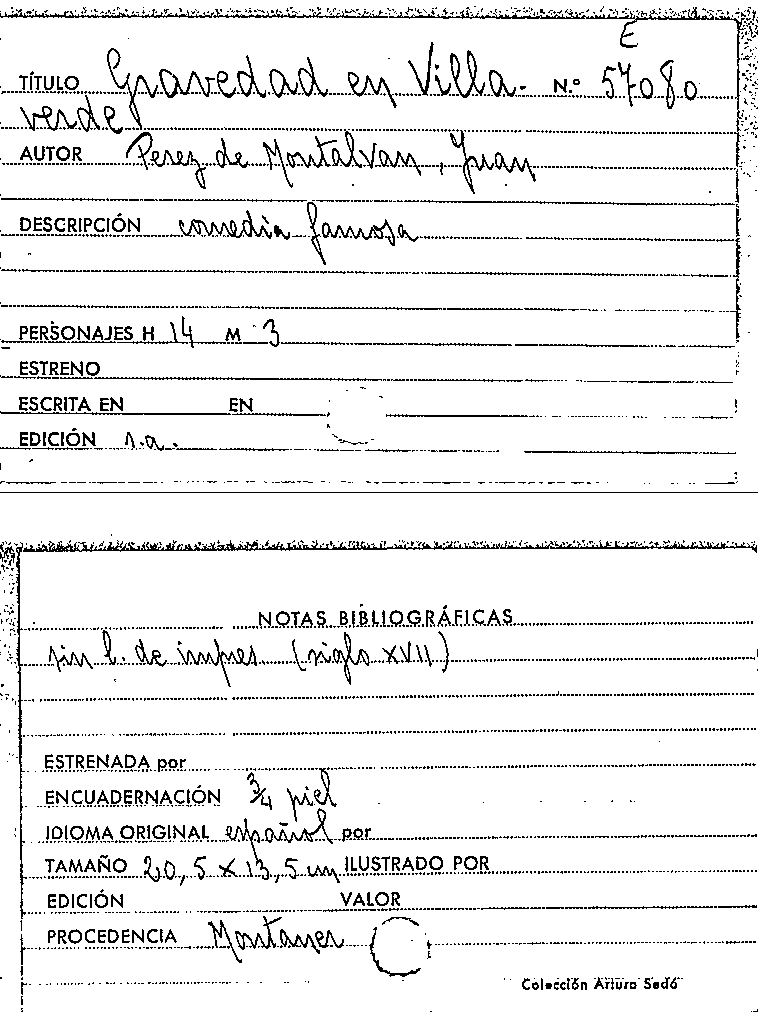 E
TÍTULO Gravedad en Villa- N.º 57080
verde
AUTOR Perez de Montalvan, Juan
DESCRIPCIÓN comedia famosa
PERSONAJES H 14 M 3
ESTRENO
ESCRITA EN EN
EDICIÓN s.a.
NOTAS BIBLIOGRÁFICAS
sin l. de impres (siglo XVII)
ESTRENADA por
ENCUADERNACIÓN 3/4 piel
IDIOMA ORIGINAL español por
TAMAÑO 20,5 x 13,5 cm ILUSTRADO POR
EDICIÓN VALOR
PROCEDENCIA Montaner
Colección Arturo Sedó